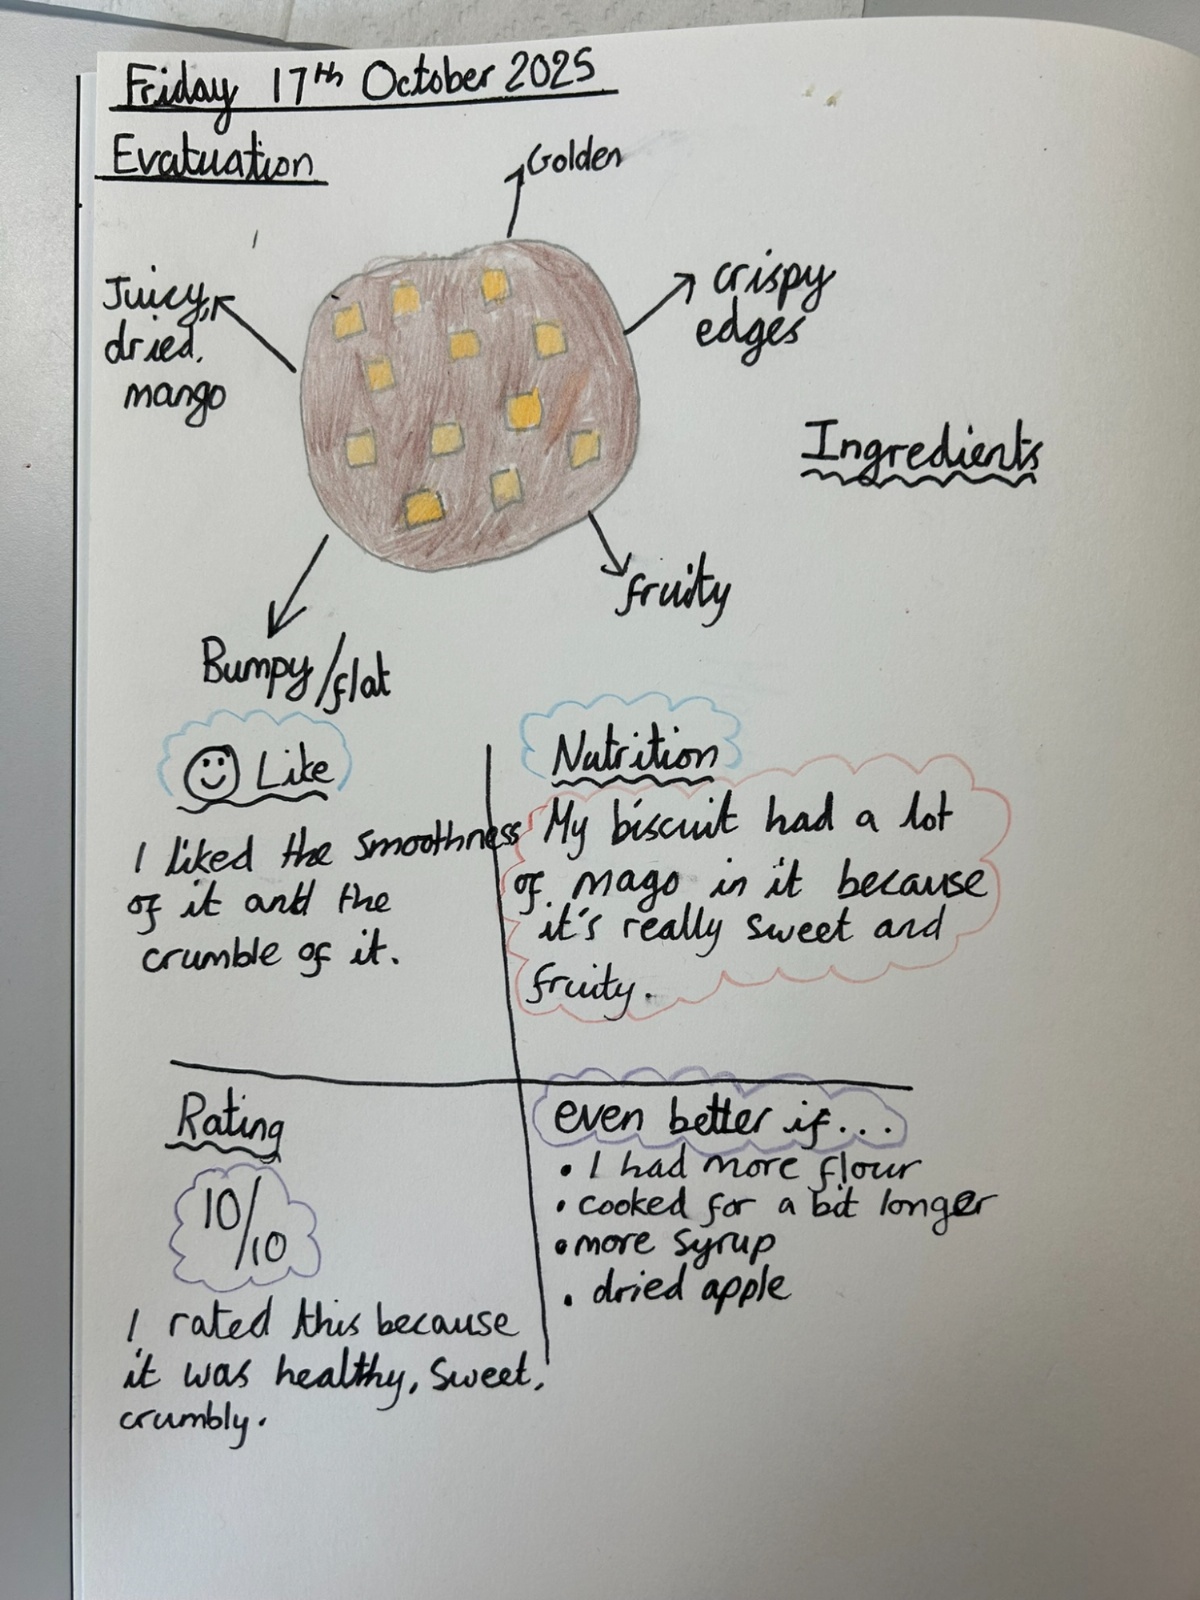 Friday 17th October 2025
Evatuation
Golden
Juicy,
dried.
mango
crispy
edges
Ingredients
fruity
Bumpy/flat
Like
I liked the smoothness
of it and the
crumble of it.
Nutrition
My biscuit had a lot
of mago in it because
it's really sweet and
fruity.
Rating
10/10
I rated this because
it was healthy, sweet,
crumbly.
even better if...
• I had more flour
• cooked for a bit longer
• more syrup
• dried apple